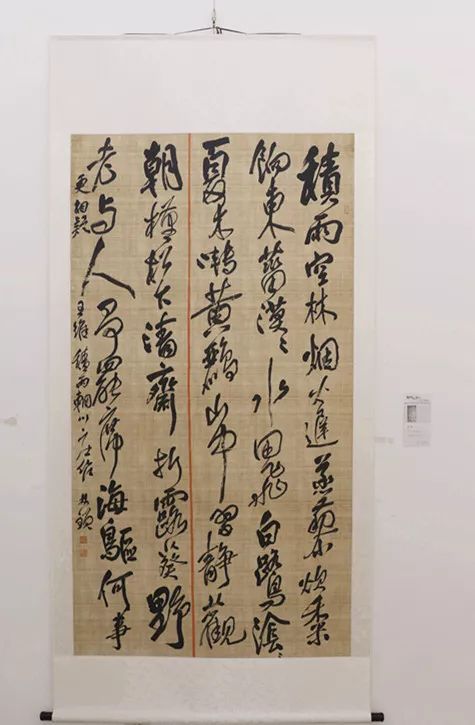 積雨空林烟火遲蒸藜炊黍
餉東菑漠〻水田飛白鷺陰〻
夏木囀黃鸝山中習靜觀
朝槿松下清齋折露葵野
老与人爭罷席海鷗何事
更相疑 王維積雨輞川庄作